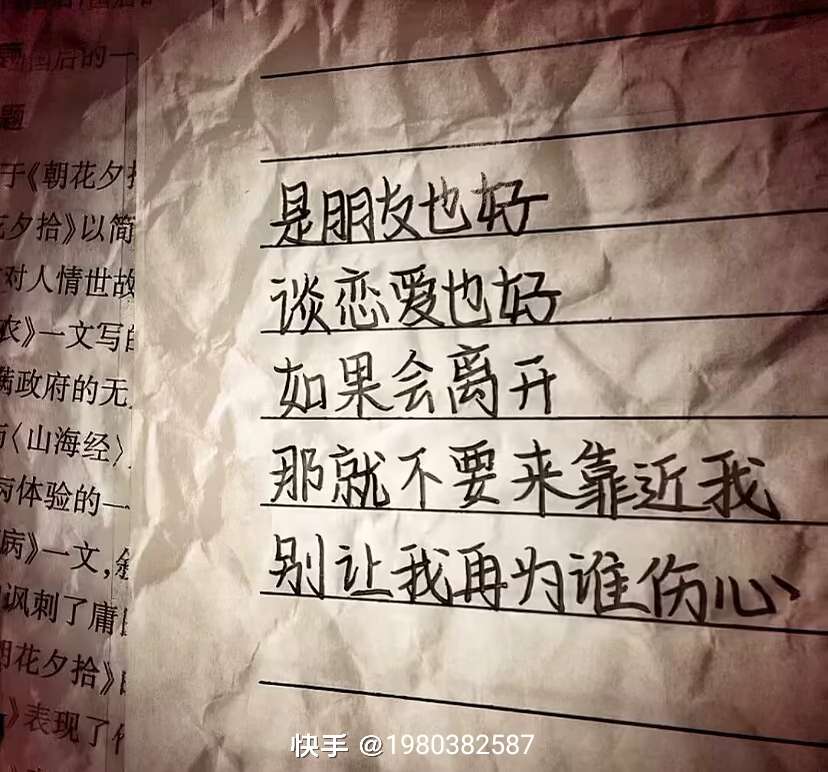 题
于《朝花夕拾
花夕拾》以简
对人情世故
衣》一文写
满政府的无
《山海经》
病体验的一
病》一文,
讽刺了庸
朝花夕拾》
》表现了
是朋友也好
谈恋爱也好
如果会离开
那就不要来靠近我
别让我再为谁伤心
快手 @1980382587